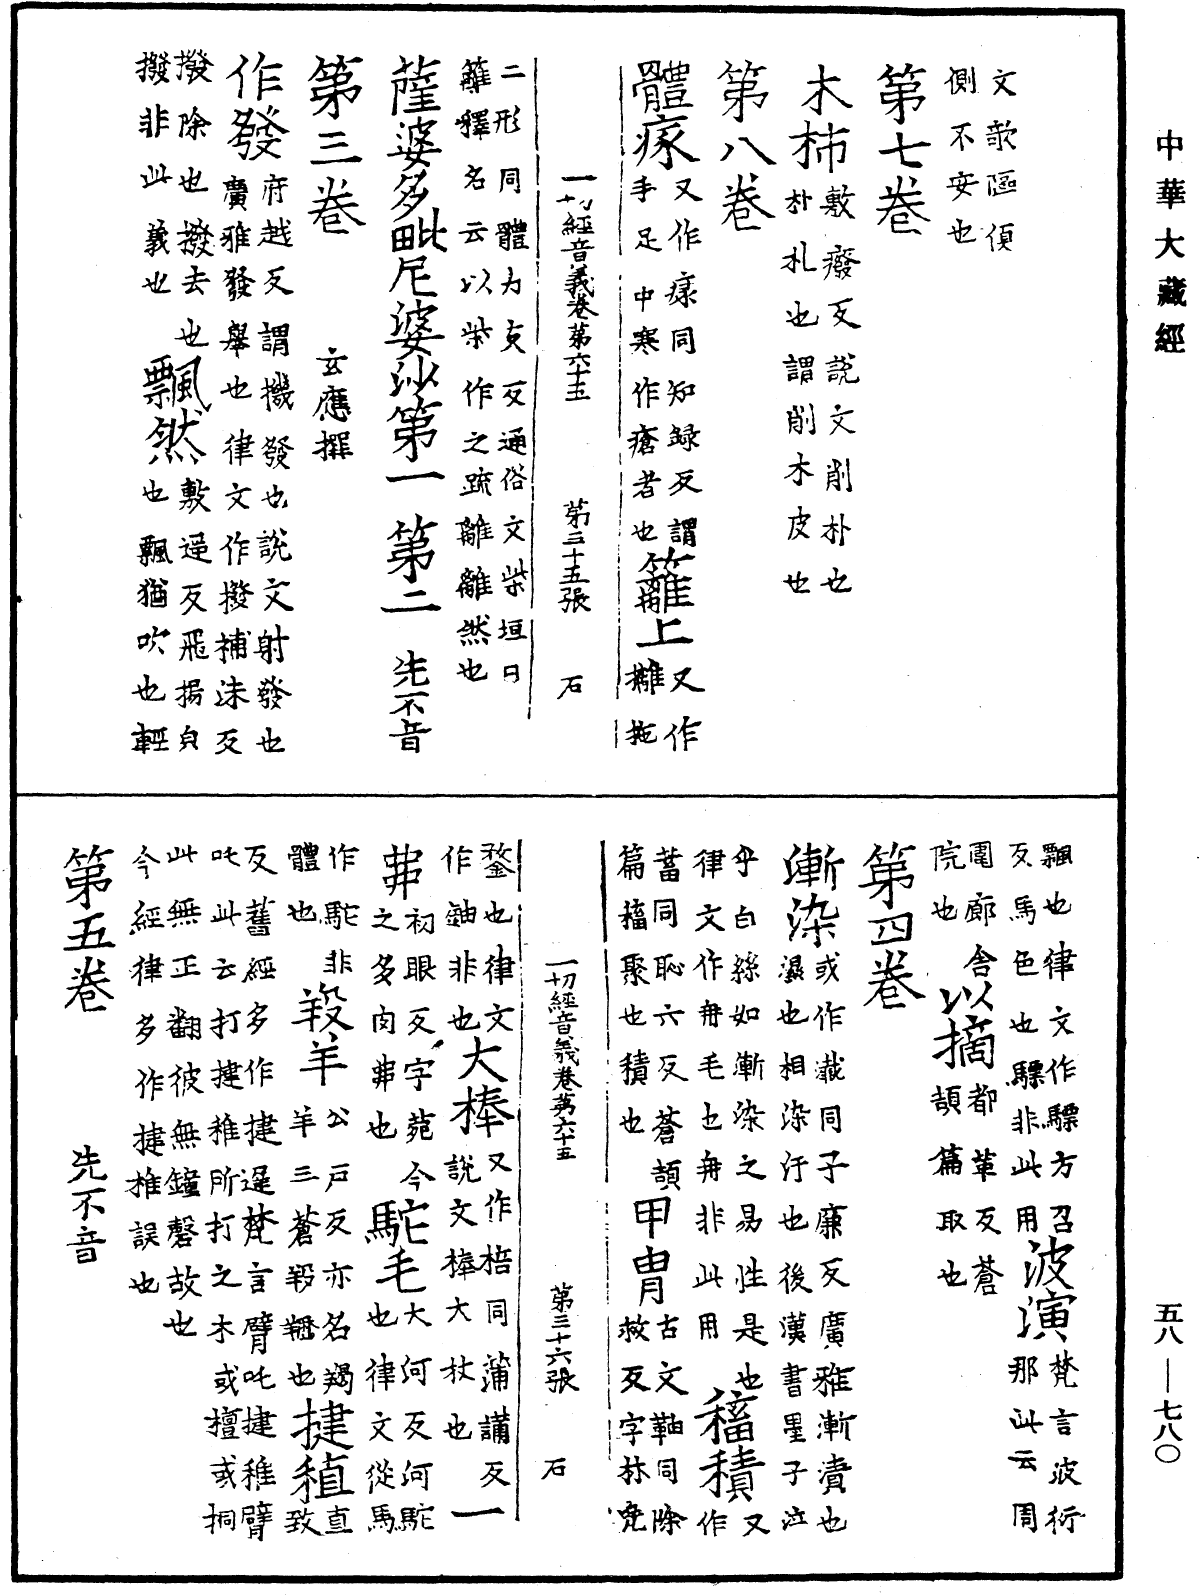 中華大藏經
文欹傴傾
側不安也
第七卷
木柿敷癈反說文削朴也
朴札也謂削木皮也
第八卷
體瘃又作瘃同知録反謂
手足中寒作瘡者也籬上又作
㰚杝
一切經音義卷第六十五 第三十五張 石
二形同體力支反通俗文柴垣曰
籬釋名云以柴作之疏離離然也
薩婆多毗尼婆沙第一 第二 先不音
第三卷 玄應撰
作發府越反謂機發也說文射發也
廣雅發舉也律文作撥補沫反
撥除也撥去也飄然敷遥反飛揚皃
撥非此義也 也飄猶吹也輕
飄也律文作驃方召波演梵言波衍
反馬色也驃非此用 那此云周
圍廊舍以摘都革反蒼
院也 頡篇取也
第四卷
漸染或作瀸同子廉反廣雅漸漬也
濕也相染汙也後漢書墨子泣
乎白絲如漸染之易性是也稸積又
律文作冉毛冉非此用 作
蓄同恥六反蒼頡甲冑古文鞈同除
篇稸聚也積也 救反字林兜
一切經音義卷第六十五 第三十六張 石
鍪也律文大棒又作棓同蒲講反一
作鈾非也 說文棒大杖也
丳初眼反字苑今駝毛大何反河駝
之多肉丳也 也律文從馬
作駝非羖羊公戸反亦名羯揵稙直
體也 羊三蒼羖䍽也 致
反舊經多作揵遲梵言臂吒揵稚臂
吒此云打揵稚所打之木或檀或桐
此無正翻彼無鐘磬故也
今經律多作揵椎誤也
第五卷 先不音
五八—七八〇